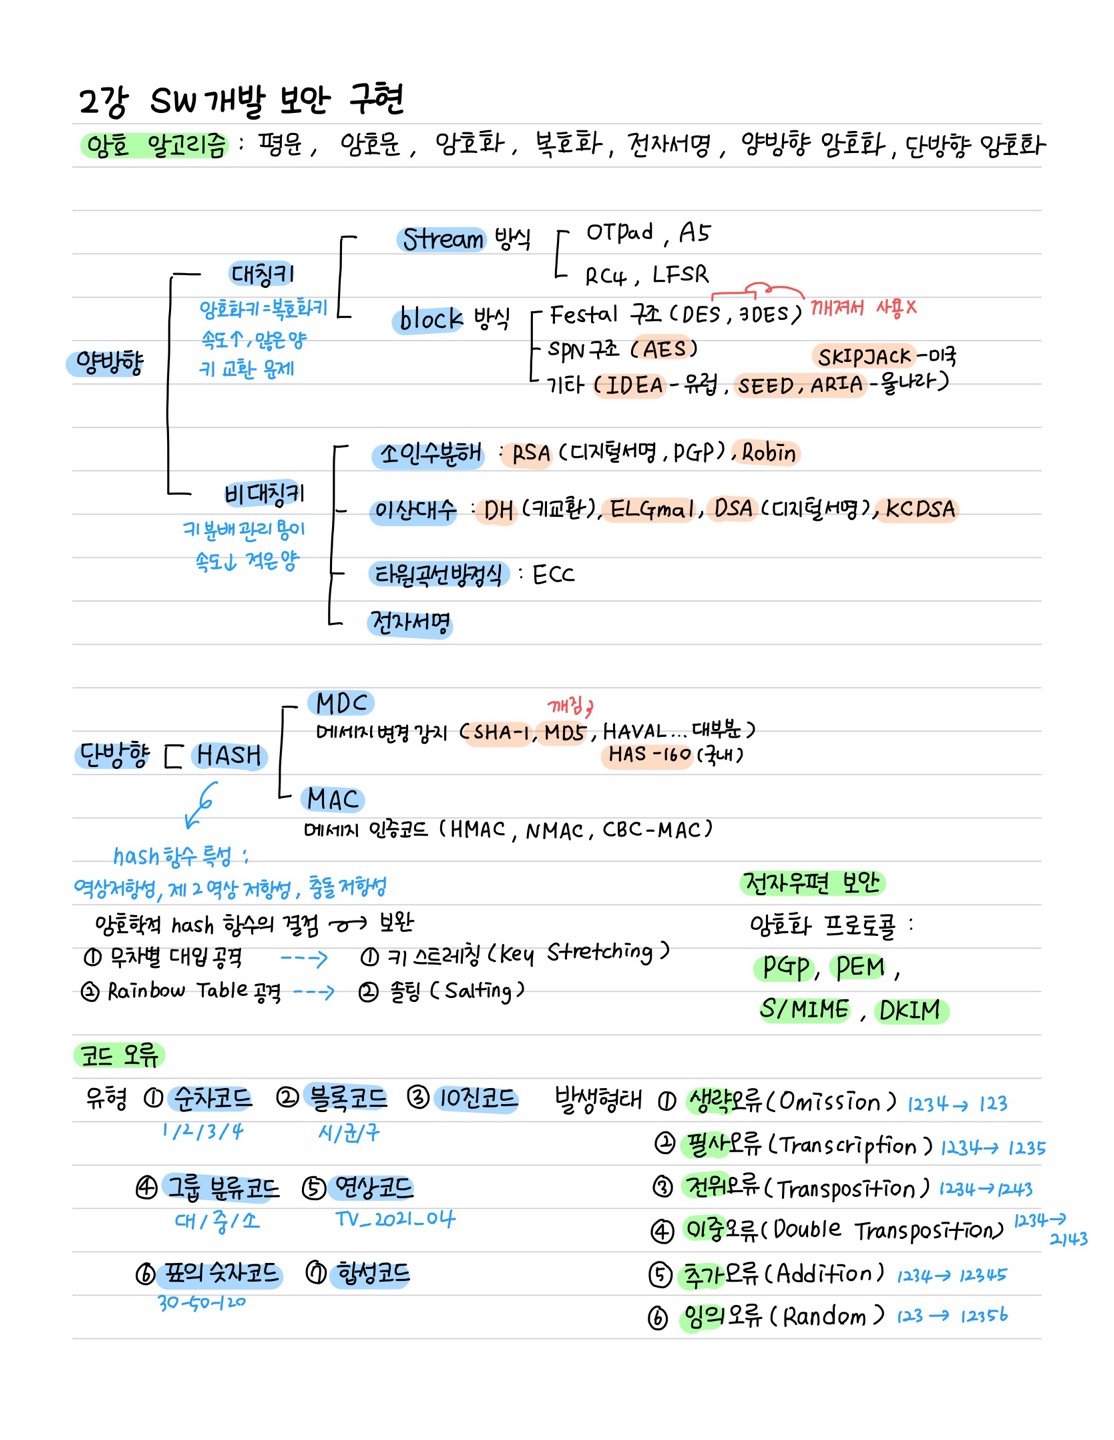 2강 SW 개발 보안 구현
암호 알고리즘 : 평문, 암호문, 암호화, 복호화, 전자서명, 양방향 암호화, 단방향 암호화
양방향
대칭키
암호화키=복호화키
속도↑, 많은 양
키 교환 문제
Stream 방식
OTPad, A5
RC4, LFSR
block 방식
Festal 구조 (DES, 3DES) 깨져서 사용X
SPN 구조 (AES)
SKIPJACK-미국
기타 (IDEA-유럽, SEED, ARIA-울나라)
비대칭키
키 분배 관리 용이
속도↓ 적은 양
소인수분해 : RSA (디지털서명, PGP), Robin
이산대수 : DH (키교환), ELGmal, DSA (디지털서명), KCDSA
타원곡선방정식 : ECC
전자서명
단방향
HASH
MDC
깨짐
메세지 변경 감지 (SHA-1, MD5, HAVAL... 대부분)
HAS-160 (국내)
MAC
메세지 인증코드 (HMAC, NMAC, CBC-MAC)
hash함수 특성 :
역상저항성, 제 2 역상 저항성, 충돌 저항성
암호학적 hash 함수의 결점 → 보완
① 무차별 대입 공격 ---> ① 키 스트레칭 (Key Stretching)
② Rainbow Table 공격 ---> ② 솔팅 (Salting)
전자우편 보안
암호화 프로토콜 :
PGP, PEM,
S/MIME, DKIM
코드 오류
유형 ① 순차코드 ② 블록코드 ③ 10진코드
1/2/3/4 시/군/구
④ 그룹 분류코드 ⑤ 연상코드
대/중/소 TV_2021_04
⑥ 표의 숫자코드 ⑦ 합성코드
30-50-120
발생형태 ① 생략오류 (Omission) 1234→123
② 필사오류 (Transcription) 1234→1235
③ 전위오류 (Transposition) 1234→1243
④ 이중오류 (Double Transposition) 1234→
2143
⑤ 추가오류 (Addition) 1234→12345
⑥ 임의오류 (Random) 123→12356